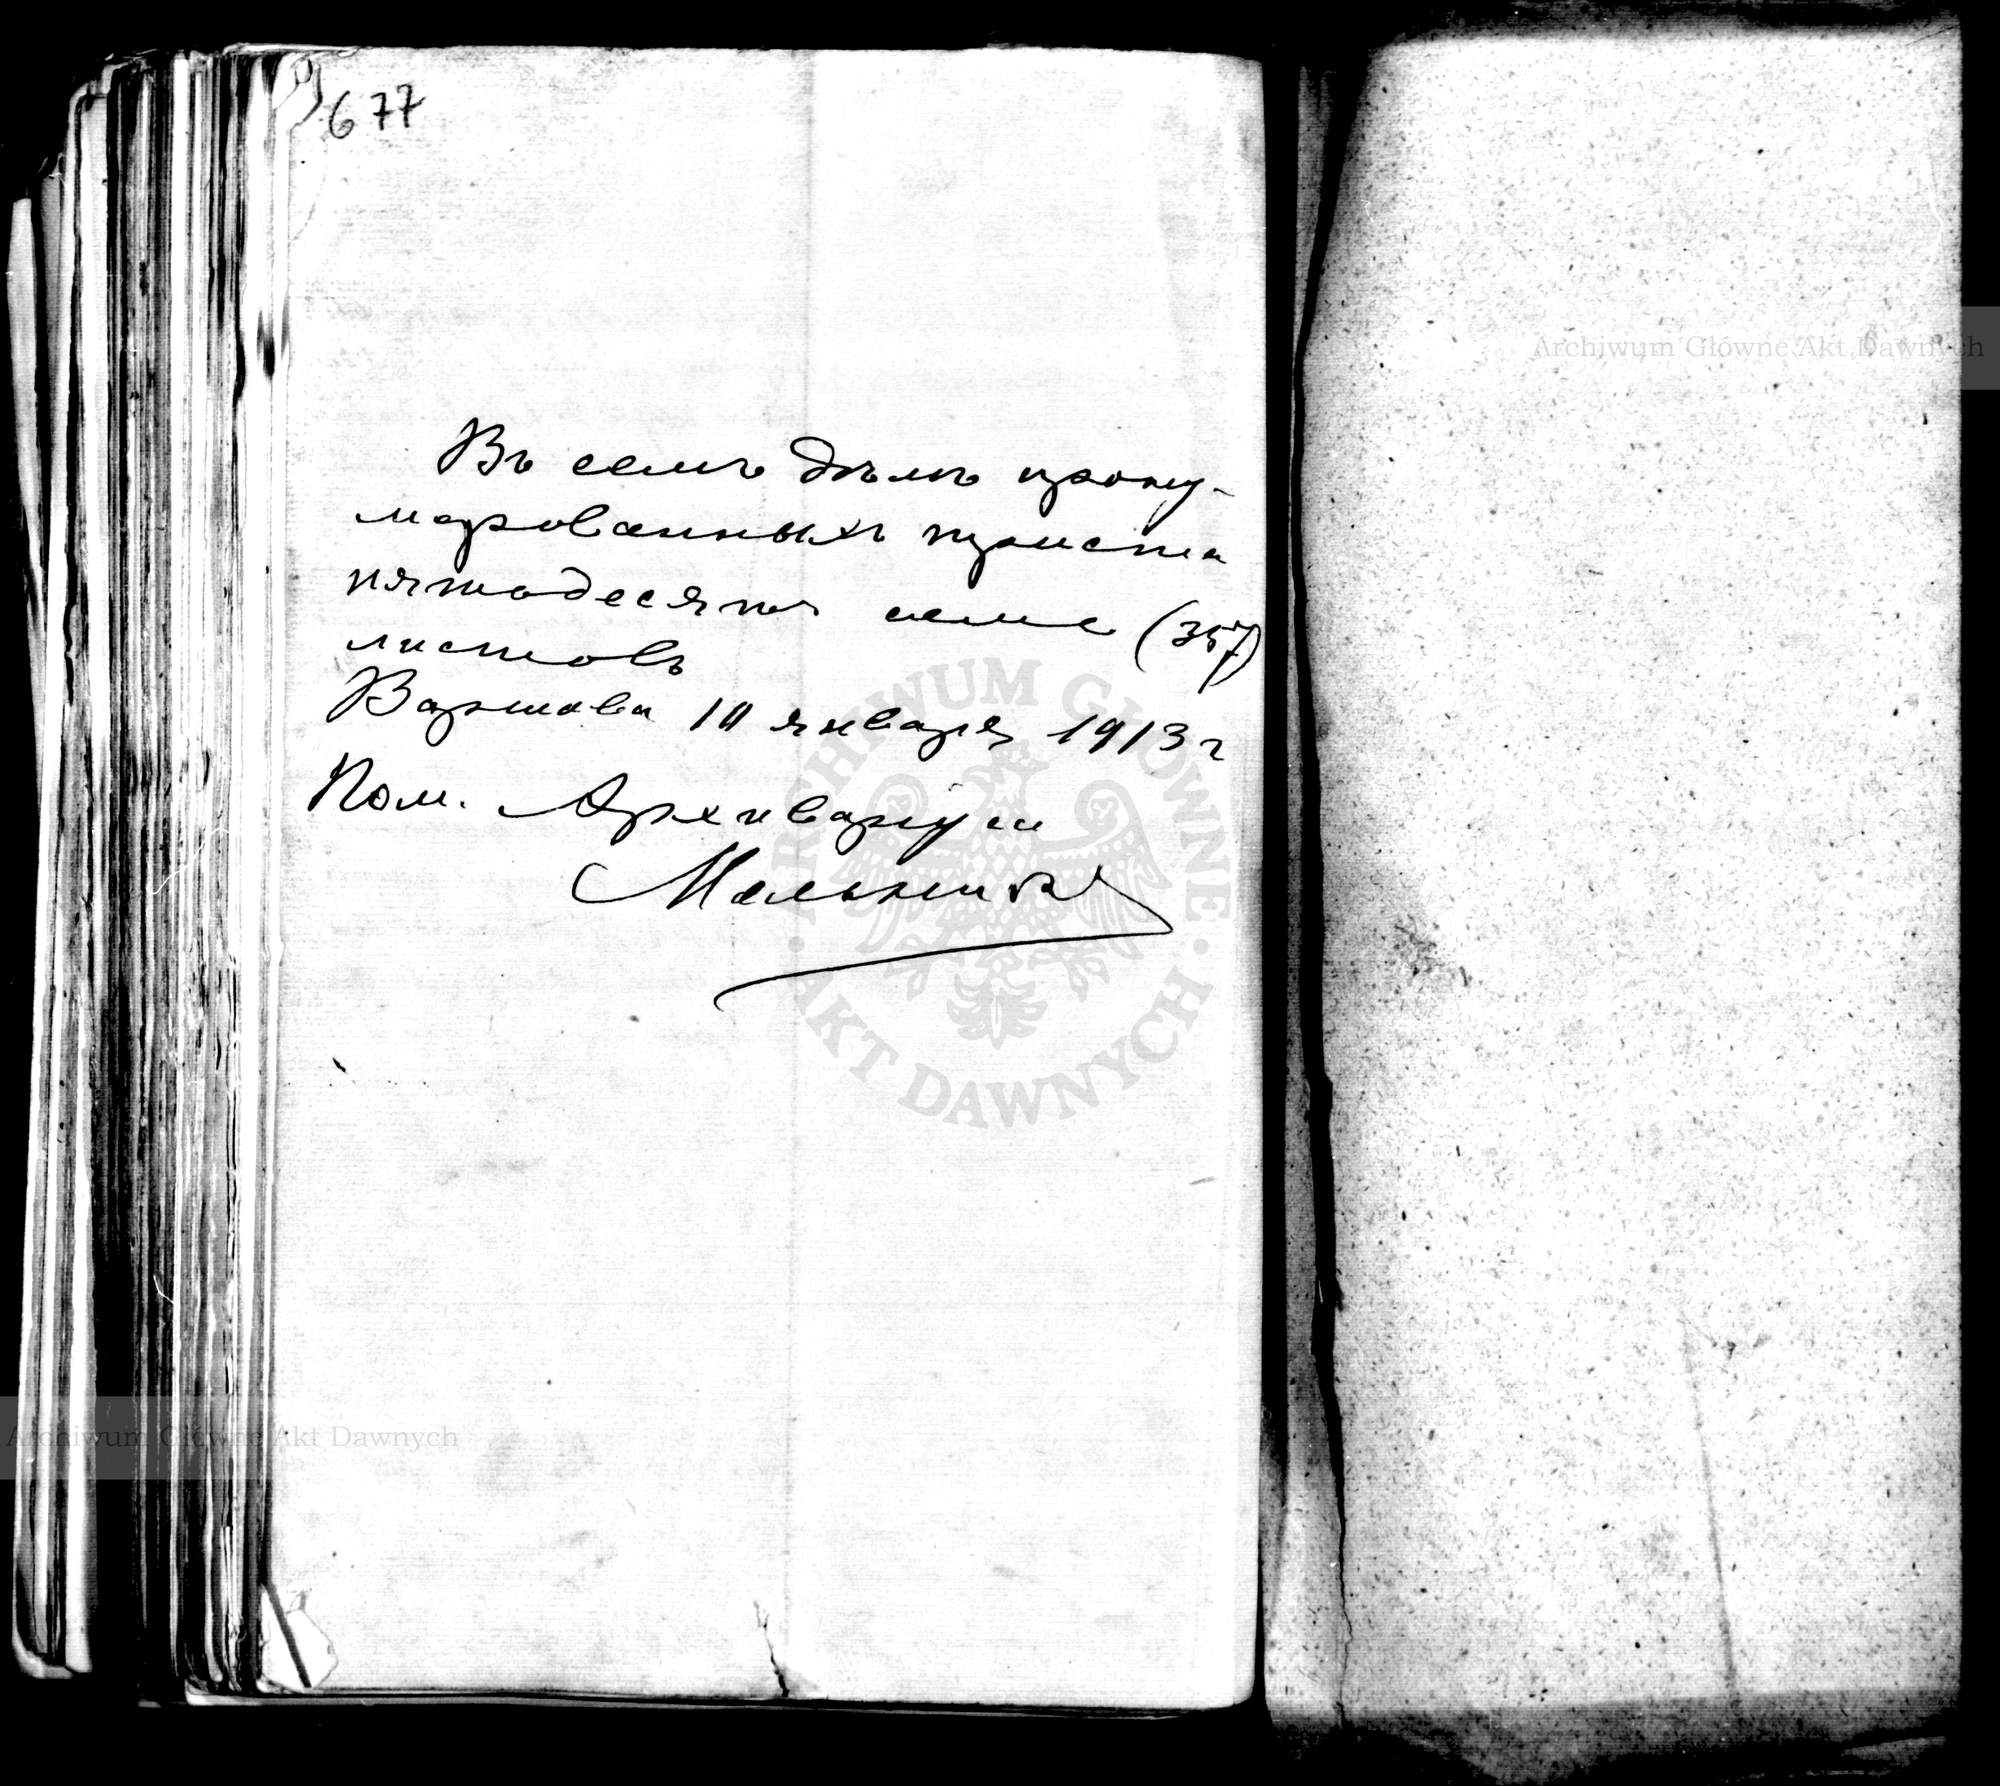 677
Въ семъ дѣлѣ прону-
мерованныхъ триста
пятьдесятъ семь (357)
листовъ
Варшава 10 января 1913 г
Пом. Архиваріуса
Мельник
Archiwum Główne Akt Dawnych
ARCHIWUM GŁÓWNE AKT DAWNYCH
Archiwum Główne Akt Dawnych